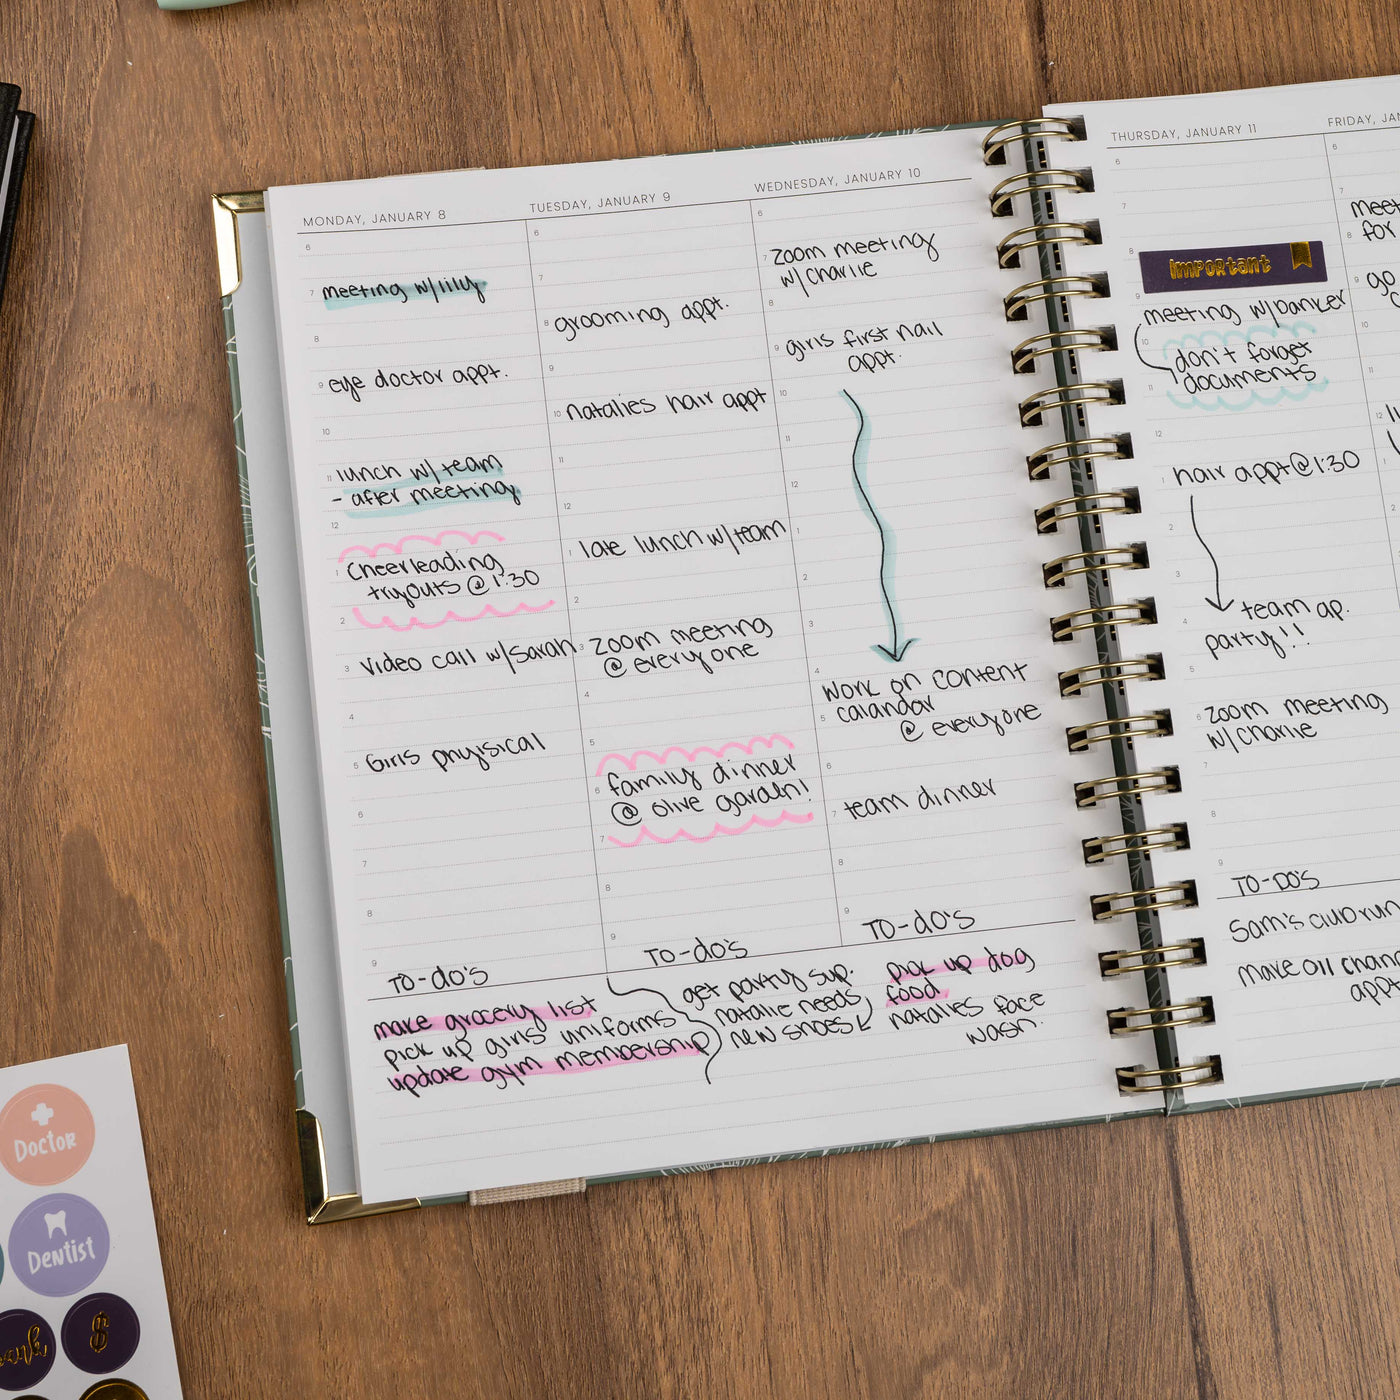 MONDAY, JANUARY 8
6
7 meeting w/lily
8
9 eye doctor appt.
10
11 lunch w/ team
- after meeting
12
1 Cheerleading
tryouts @ 1:30
2
3 video call w/Sarah
4
5 Girls phyisical
6
7
8
9
TO-do's
make grocery list
pick up girls uniforms
update gym membership
TUESDAY, JANUARY 9
6
7
8 grooming appt.
9
10 natalies hair appt
11
12
1 late lunch w/team
2
3 zoom meeting
@ everyone
4
5
6 family dinner
@ olive garden!
7
8
9
TO-do's
get party sup.
natalie needs
new shoes
WEDNESDAY, JANUARY 10
6
7 zoom meeting
w/ charlie
8
9 girls first nail
appt.
10
11
12
1
2
3
4
work on content
5 calandar
@ everyone
6
7 team dinner
8
9
TO-do's
pick up dog
food
natalies face
wash.
THURSDAY, JANUARY 11
6
7
8
important
9
meeting w/banker
10
don't forget
11 documents
12
1 hair appt @ 1:30
2
3
4 team ap.
party!!
5
6 zoom meeting
w/charlie
7
8
9
TO-DO'S
Sam's club run
make oil
appt
FRIDAY,
6
7
8 for
9 go
10
11
12
1
2
Doctor
Dentist
$